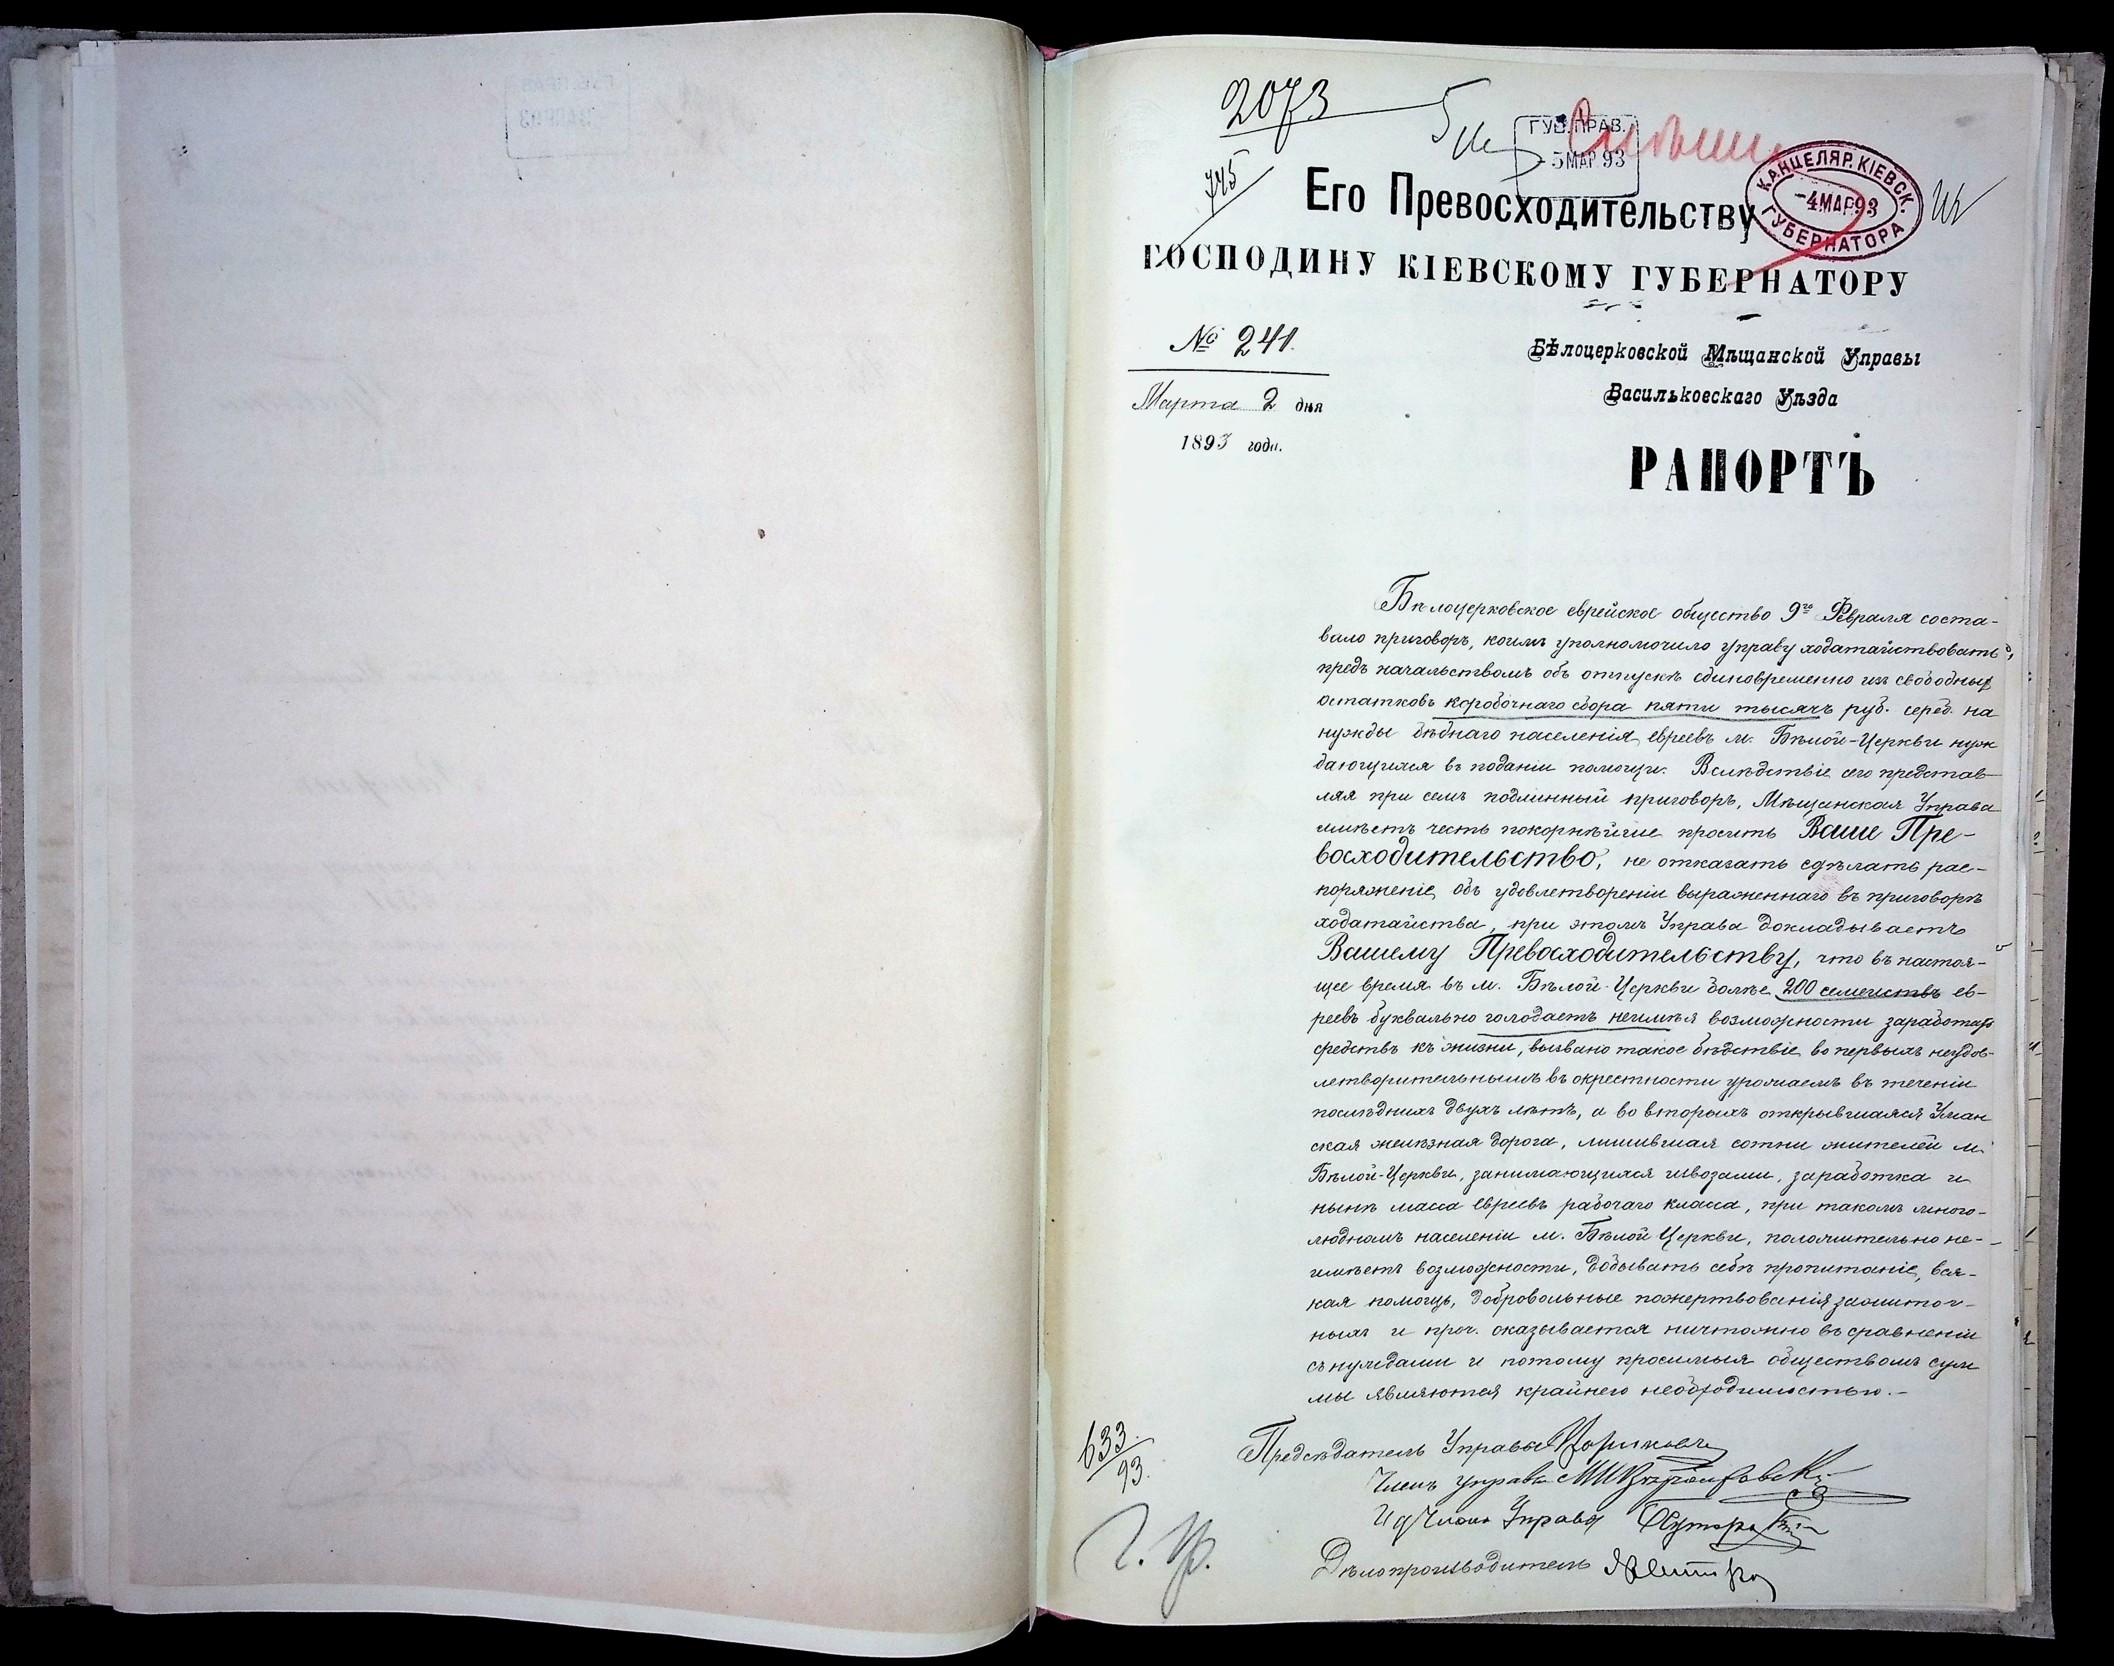 2073
745
ГУБ. ПРАВ.
- 5 МАР 93
КАНЦЕЛЯР. КІЕВСК. ГУБЕРНАТОРА
- 4 МАР 93
Его Превосходительству
ГОСПОДИНУ КІЕВСКОМУ ГУБЕРНАТОРУ
№ 241.
Марта 2 дня
1893 года.
Бѣлоцерковской Мѣщанской Управы
Васильковскаго Уѣзда
РАПОРТЪ
Бѣлоцерковское еврейское общество 9го Февраля соста-
вило приговоръ, коимъ уполномочило управу ходатайствовать
предъ начальствомъ объ отпускѣ единовременно изъ свободных
остатковъ коробочнаго сбора пяти тысячъ руб. сереб. на
нужды бѣднаго населенія евреевъ м. Бѣлой-Церкви нуж
дающихся въ поданіи помощи. Вслѣдствіе сего представ-
ляя при семъ подлинный приговоръ, Мѣщанская Управа
имѣетъ честь покорнѣйше просить Ваше Пре-
восходительство, не отказать сдѣлать рас-
поряженіе объ удовлетвореніи выраженнаго въ приговорѣ
ходатайства, при этомъ Управа докладываетъ
Вашему Превосходительству, что въ настоя-
щее время въ м. Бѣлой-Церкви болѣе 200 семействъ ев-
реевъ буквально голодаетъ неимѣя возможности заработать
средствъ къ жизни, вызвано такое бѣдствіе во первыхъ неудов-
летворительнымъ въ окрестности урожаемъ въ теченіи
послѣднихъ двухъ лѣтъ, а во вторыхъ открывшаяся Уман
ская желѣзная дорога, лишившая сотни жителей м.
Бѣлой-Церкви, занимающихся извозами, заработка и
нынѣ масса евреевъ рабочаго класса, при такомъ много-
людномъ населеніи м. Бѣлой Церкви, положительно не-
имѣетъ возможности, добывать себѣ пропитаніе, вся-
кая помощь, добровольные пожертвованія зажиточ-
ныхъ и проч. оказывается ничтожно въ сравненіи
съ нуждами и потому просимыя обществомъ сум
мы являются крайнею необходимостью.-
Предсѣдатель Управы
Членъ управы
И д Члена Управы
Дѣлопроизводитель
633
93.